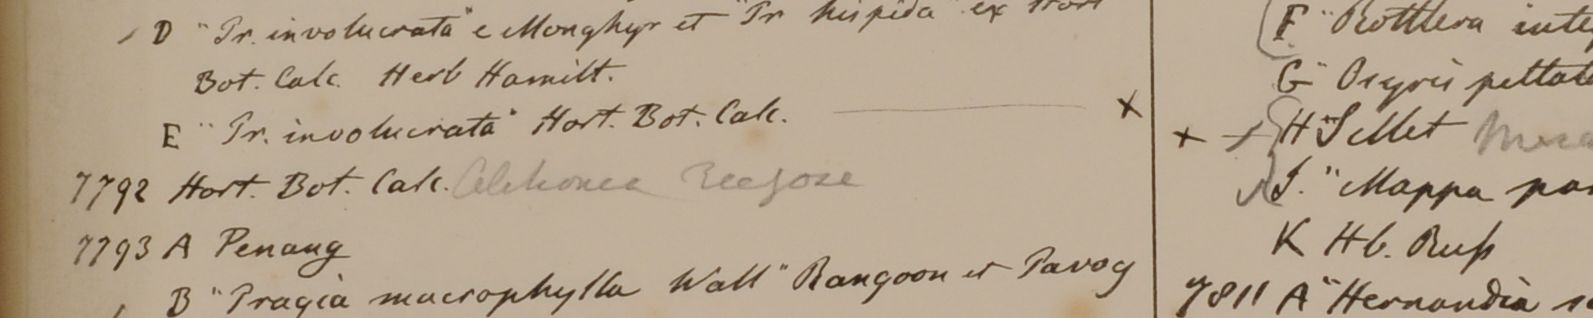 D "Tr. involucrata" e Monghyr et "Tr hispida" ex Hort
Bot. Calc. Herb Hamilt.
E "Tr. involucrata" Hort. Bot. Calc. x
7792 Hort. Bot. Calc.
7793 A Penang
B "Tragia macrophylla Wall" Rangoon et Tavoy
F "Rottlera inte
G "Osyris peltat
x H "Sillet
I. "Mappa pa
K Hb. Russ
7811 A "Hernandia